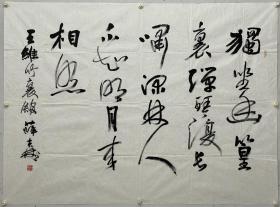 獨坐幽篁
裏彈琴復長
嘯深林人
不知明月來
相照
王維竹裏館 薛